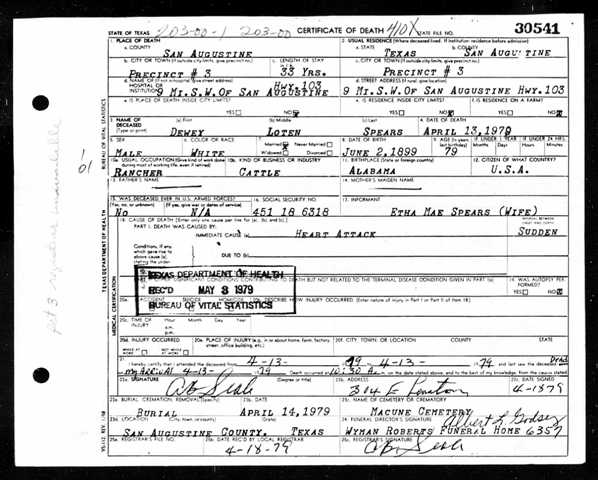 STATE OF TEXAS 203-00-1 203-00 CERTIFICATE OF DEATH 410X STATE FILE NO. 30541
1. PLACE OF DEATH 2. USUAL RESIDENCE (Where deceased lived. If institution: residence before admission)
a. COUNTY a. STATE b. COUNTY
SAN AUGUSTINE TEXAS SAN AUGUSTINE
b. CITY OR TOWN (If outside city limits, give precinct no.) c. LENGTH OF STAY c. CITY OR TOWN (If outside city limits, give precinct no.)
PRECINCT # 3 33 YRS. PRECINCT # 3
d. NAME OF (If not in hospital, give street address) HOSPITAL OR INSTITUTION d. STREET ADDRESS (If rural, give location)
9 MI.S.W.OF SAN AUGUSTINE HWY.103 9 MI.S.W.OF SAN AUGUSTINE HWY.103
e. IS PLACE OF DEATH INSIDE CITY LIMITS? e. IS RESIDENCE INSIDE CITY LIMITS? f. IS RESIDENCE ON A FARM?
YES NO YES NO YES NO
3. NAME OF DECEASED (Type or print) (a) First (b) Middle (c) Last 4. DATE OF DEATH
DEWEY LOTEN SPEARS APRIL 13,1979
5. SEX 6. COLOR OR RACE 7. Married Never Married Widowed Divorced 8. DATE OF BIRTH 9. AGE IF UNDER 1 YEAR IF UNDER 24 HRS.
MALE WHITE JUNE 2,1899 79
10a. USUAL OCCUPATION (Give kind of work done during most of working life, even if retired) 10b. KIND OF BUSINESS OR INDUSTRY 11. BIRTHPLACE (State or foreign country) 12. CITIZEN OF WHAT COUNTRY?
RANCHER CATTLE ALABAMA U.S.A.
13. FATHER'S NAME 14. MOTHER'S MAIDEN NAME
15. WAS DECEASED EVER IN U.S. ARMED FORCES? 16. SOCIAL SECURITY NO. 17. INFORMANT
(Yes, no, or unknown) (If yes, give war or dates of service)
NO N/A 451 18 6318 ETHA MAE SPEARS (WIFE)
18. CAUSE OF DEATH [Enter only one cause per line for (a), (b), and (c).]
PART I. DEATH WAS CAUSED BY:
IMMEDIATE CAUSE (a) HEART ATTACK SUDDEN
Conditions, if any, which gave rise to above cause (a) stating the under-
DUE TO (b)
TEXAS DEPARTMENT OF HEALTH
REC'D MAY 8 1979
BUREAU OF VITAL STATISTICS
19. WAS AUTOPSY PERFORMED?
YES NO
20a. ACCIDENT SUICIDE HOMICIDE 20b. DESCRIBE HOW INJURY OCCURRED (Enter nature of injury in Part I or Part II of item 18.)
20c. TIME OF INJURY Hour Month Day Year
a.m.
p.m.
20d. INJURY OCCURRED 20e. PLACE OF INJURY (e.g., in or about home, farm, factory, street, office building, etc.) 20f. CITY, TOWN, OR LOCATION COUNTY STATE
21. I hereby certify that I attended the deceased from 4-13- 79 4-13- 79 and last saw the deceased Dead
my Arrival 4-13- 79 Death occurred at 10:30 A m. on the date stated above, and to the best of my knowledge, from the causes stated.
22a. SIGNATURE 22b. ADDRESS 22c. DATE SIGNED
4-18-79
23a. BURIAL, CREMATION, REMOVAL (Specify) 23b. DATE 23c. NAME OF CEMETERY OR CREMATORY
BURIAL APRIL 14,1979 MACUNE CEMETERY
23d. LOCATION (City, town, or county) (State) 24. FUNERAL DIRECTOR'S SIGNATURE
SAN AUGUSTINE COUNTY, TEXAS WYMAN ROBERTS FUNERAL HOME 6357
25a. REGISTRAR'S FILE NO. 25b. DATE REC'D BY LOCAL REGISTRAR 25c. REGISTRAR'S SIGNATURE
4-18-79
TEXAS DEPARTMENT OF HEALTH BUREAU OF VITAL STATISTICS
MEDICAL CERTIFICATION